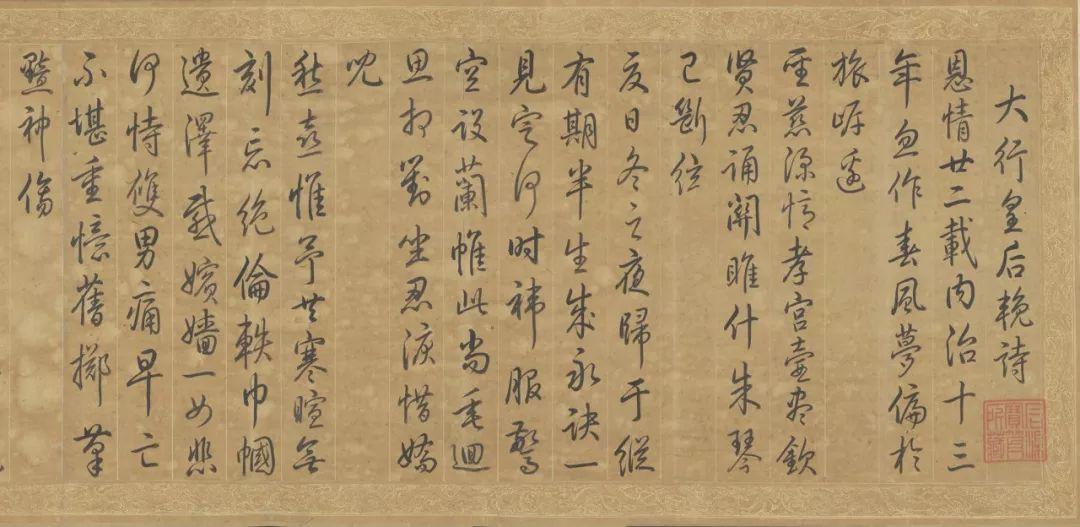 大行皇后輓詩
恩情廿二載內治十三
年忽作春風夢偏於
旅岸邊
聖慈深憶孝宮壼盡欽
賢忍誦關雎什朱琴
已斷絃
夏日冬之夜歸于縱
有期半生成永訣一
見定何時褘服驚
空設蘭帷此尚垂迴
思相對坐忍淚惜嬌
兒
愁喜惟予共寒暄無
刻忘絕倫軼巾幗
遺澤感嬪嬙一女悲
何恃雙男痛早亡
不堪重憶舊擲筆
黯神傷